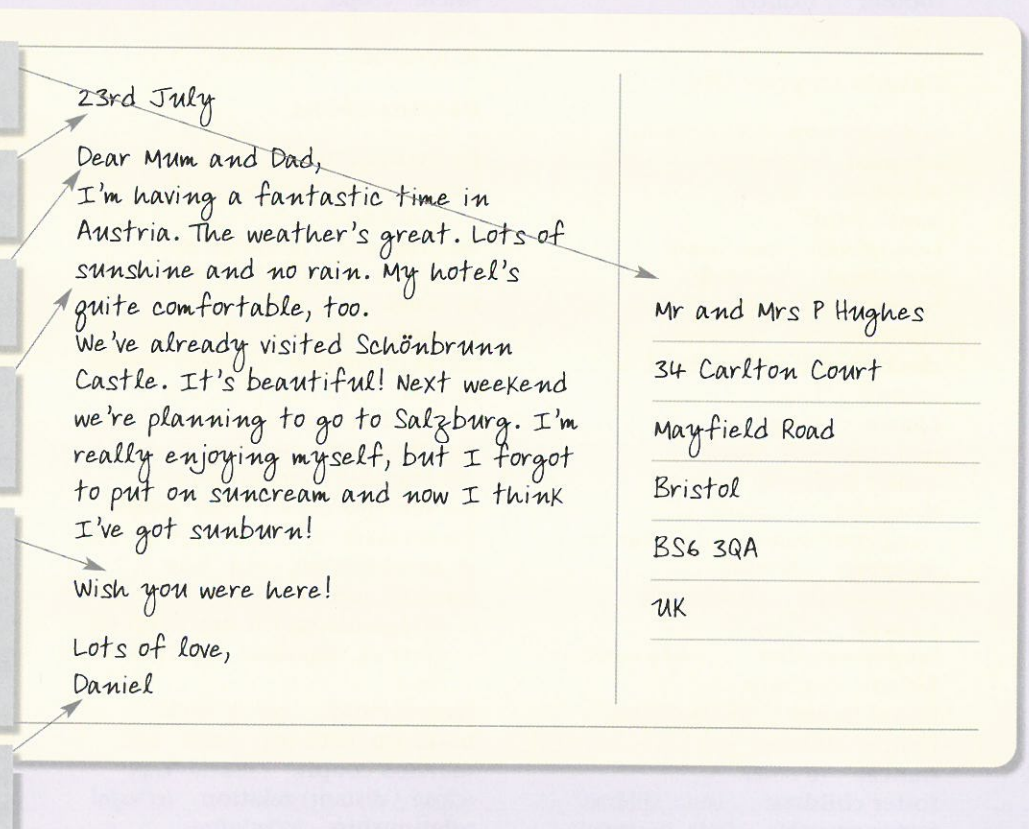 23rd July
Dear Mum and Dad,
I'm having a fantastic time in
Austria. The weather's great. Lots of
sunshine and no rain. My hotel's
quite comfortable, too.
We've already visited Schönbrunn
Castle. It's beautiful! Next weekend
we're planning to go to Salzburg. I'm
really enjoying myself, but I forgot
to put on suncream and now I think
I've got sunburn!
Wish you were here!
Lots of love,
Daniel
Mr and Mrs P Hughes
34 Carlton Court
Mayfield Road
Bristol
BS6 3QA
UK